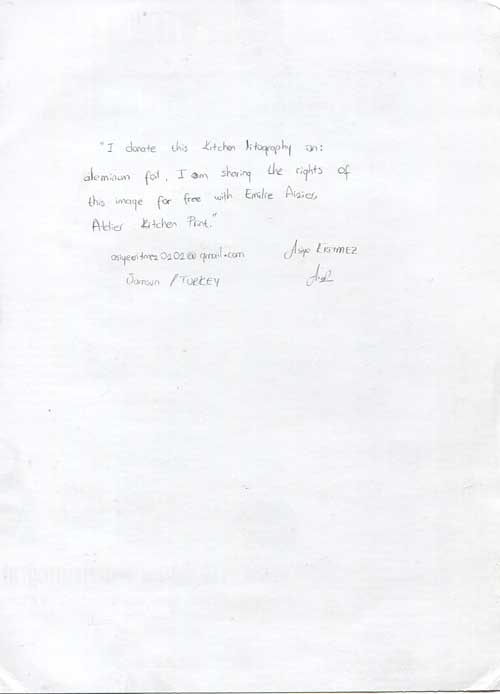 "I donate this kitchen litography on:
aleminun foil. I am sharing the rights of
this image for free with Emilie Aizier,
Atelier Kitchen Print."
Asiye
Samsun / TURKEY